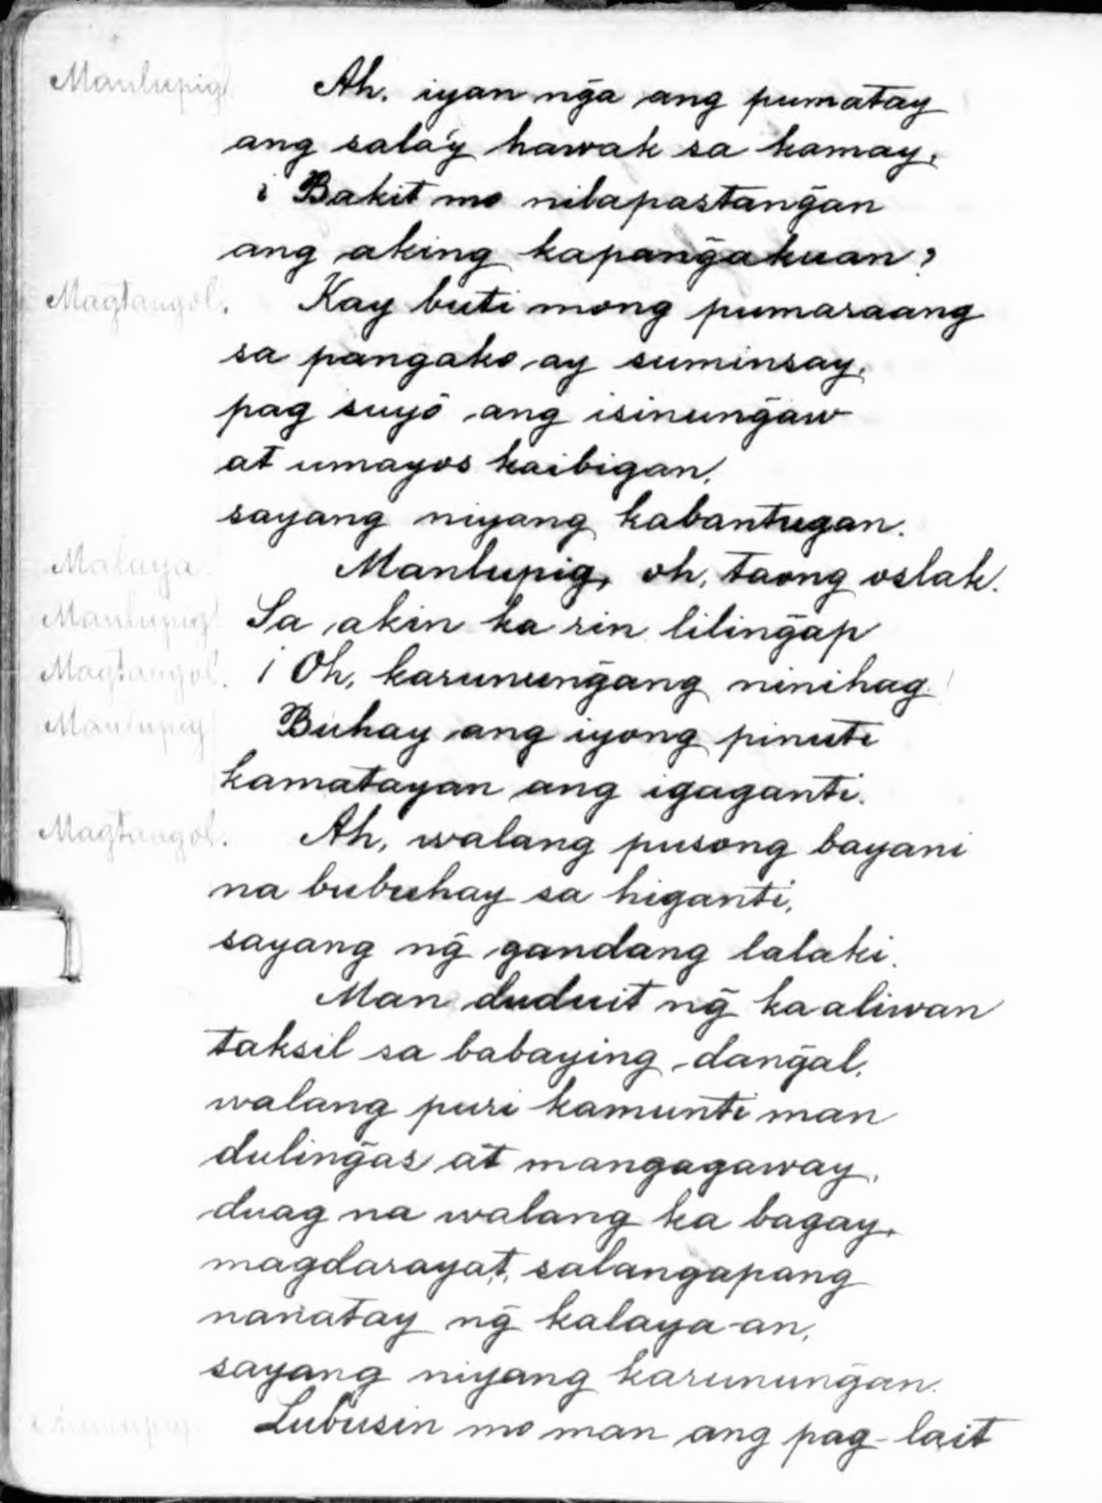 Manlupig Ah. iyan ng̃a ang pumatay
ang sala'y hawak sa kamay,
¿ Bakit mo nilapastang̃an
ang aking kapang̃akuan?
Magtangol. Kay buti mong pumaraang
sa pangako ay suminsay,
pag suyõ ang isinung̃aw
at umayos kaibigan,
sayang niyang kabantugan.
Malaya. Manlupig, oh, taong oslak.
Manlupig Sa akin ka rin liling̃ap
Magtangol. ¡ Oh, karunung̃ang ninihag!
Manlupig Buhay ang iyong pinuti
kamatayan ang igaganti.
Magtangol. Ah, walang pusong bayani
na bubuhay sa higanti,
sayang ng̃ gandang lalaki.
Man duduit ng̃ kaaliwan
taksil sa babaying dang̃al,
walang puri kamunti man
duling̃as at mangagaway,
duag na walang ka bagay,
magdarayat, salangapang
nanatay ng̃ kalaya-an,
sayang niyang karunung̃an.
Manlupig Lubusin mo man ang pag-lait